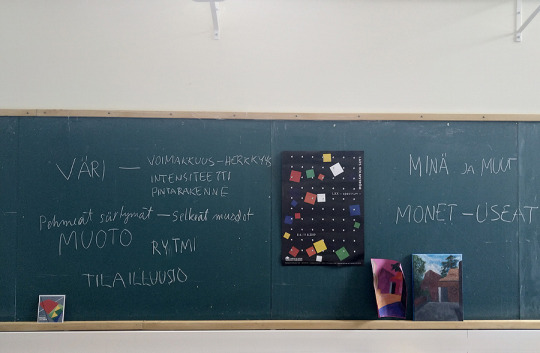 VÄRI — VOIMAKKUUS-HERKKYYS
INTENSITEETTI
PINTARAKENNE
Pehmeät särkymät — Selkeät muodot
MUOTO
RYTMI
TILAILLUUSIO
MINÄ JA MUUT
MONET-USEAT